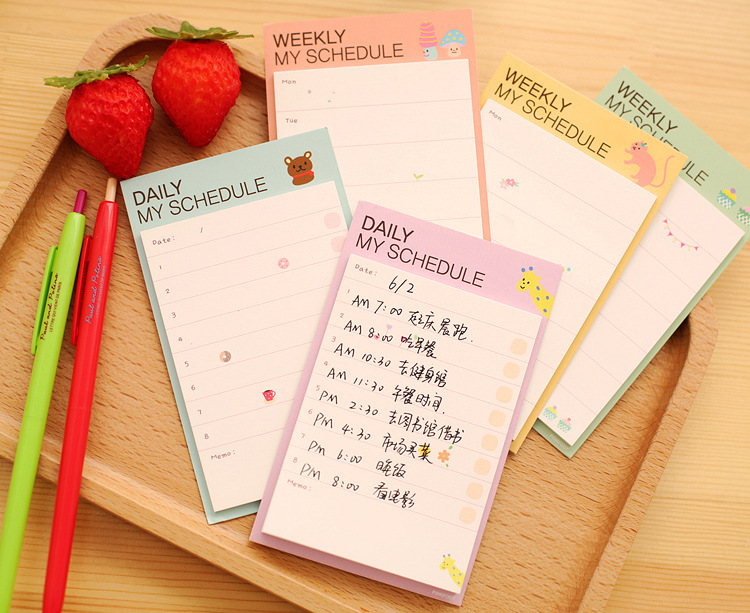 WEEKLY
MY SCHEDULE
Mon
Tue
WEEKLY
MY SCHEDULE
Mon
WEEKLY
MY SCHEDULE
DAILY
MY SCHEDULE
Date: /
1
2
3
4
5
6
7
8
Memo:
DAILY
MY SCHEDULE
Date: 6/2
1 AM 7:00 起床晨跑.
2 AM 8:00 吃早餐
3 AM 10:30 去健身馆
4 AM 11:30 午餐时间.
5 PM 2:30 去图书馆借书
6 PM 4:30 市场买菜
7 PM 6:00 晚饭
8 PM 8:00 看电影
Memo:
Paul and Palera
Paul and Palera